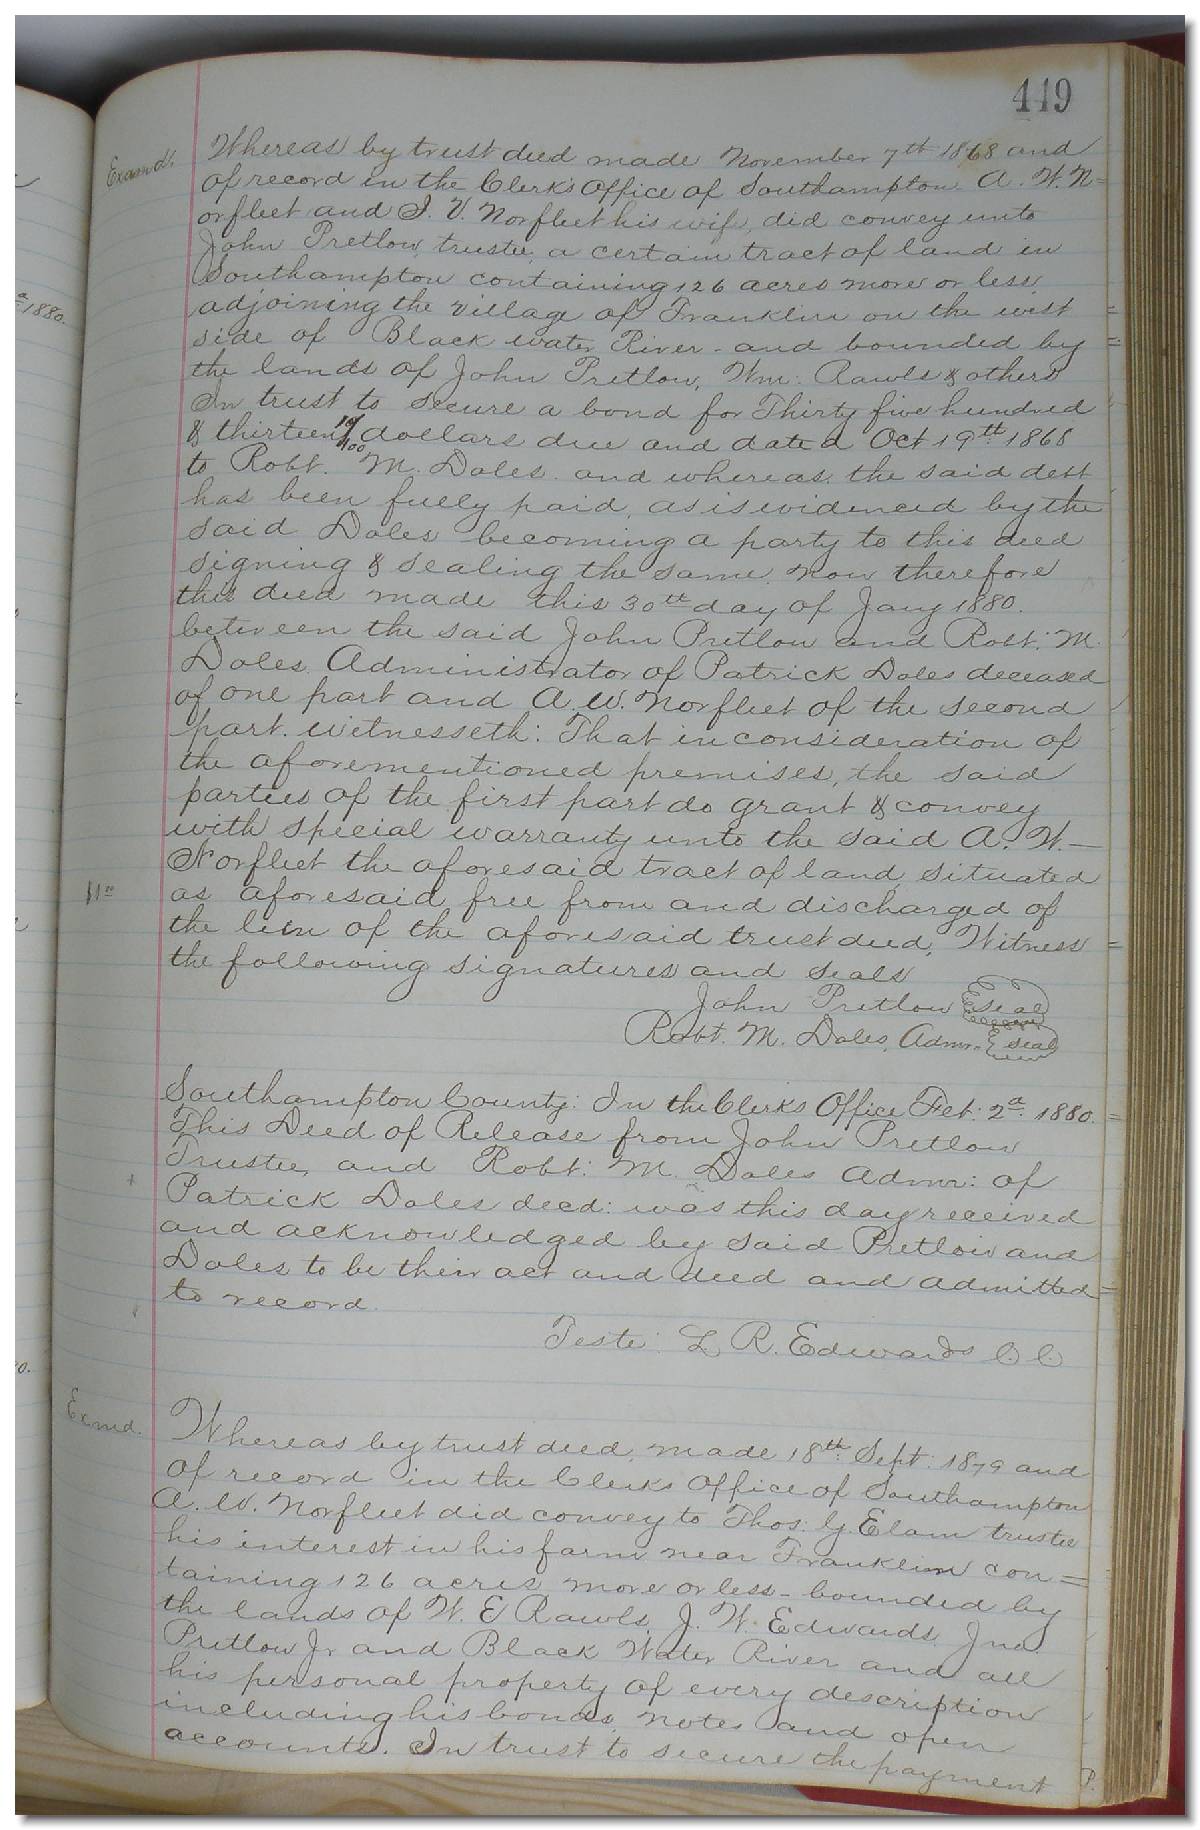 449
Examd.
Whereas by trust deed made November 7th 1868 and
of record in the Clerk's Office of Southampton A. W. N=
orfleet and S. V. Norfleet his wife, did convey unto
John Pretlow, trustee, a certain tract of land in
Southampton containing 126 acres more or less
adjoining the village of Franklin on the west
side of Black water River - and bounded by
the lands of John Pretlow, Wm: Rawls & others
In trust to secure a bond for Thirty five hundred
& thirteen /100 dollars due and dated Oct 19th 1868
to Robt. M. Doles. and whereas, the said debt
has been fully paid, as is evidenced by the
said Doles becoming a party to this deed
signing & sealing the same, now therefore
this deed made this 30th day of Jany 1880.
between the said John Pretlow and Robt: M.
Doles, Administrator of Patrick Doles deceased
of one part and A. W. Norfleet of the second
part. witnesseth: That in consideration of
the aforementioned premises, the said
parties of the first part do grant & convey
with special warranty unto the said A. W.
Norfleet the aforesaid tract of land, situated
as aforesaid free from and discharged of
the lien of the aforesaid trust deed, Witness =
the following signatures and seals
John Pretlow Seal
Robt. M. Doles, Admr. Seal
Southampton County: In the Clerks Office Feb: 2d 1880. =
This Deed of Release from John Pretlow
Trustee, and Robt: M. Doles Admr: of
Patrick Doles decd: was this day received
and acknowledged by said Pretlow and
Doles to be their act and deed and admitted =
to record.
Teste: L. R. Edwards C. C.
Exmd.
Whereas by trust deed, made 18th Sept: 1879 and
of record in the Clerks Office of Southampton
A. W. Norfleet did convey to Thos: G. Elam trustee
his interest in his farm near Franklin con =
taining 126 acres more or less - bounded by
the lands of W. E. Rawls, J. W. Edwards, Jno.
Pretlow Jr and Black Water River and all
his personal property of every description
including his bonds, notes and open
accounts. In trust to secure the payment
1880.